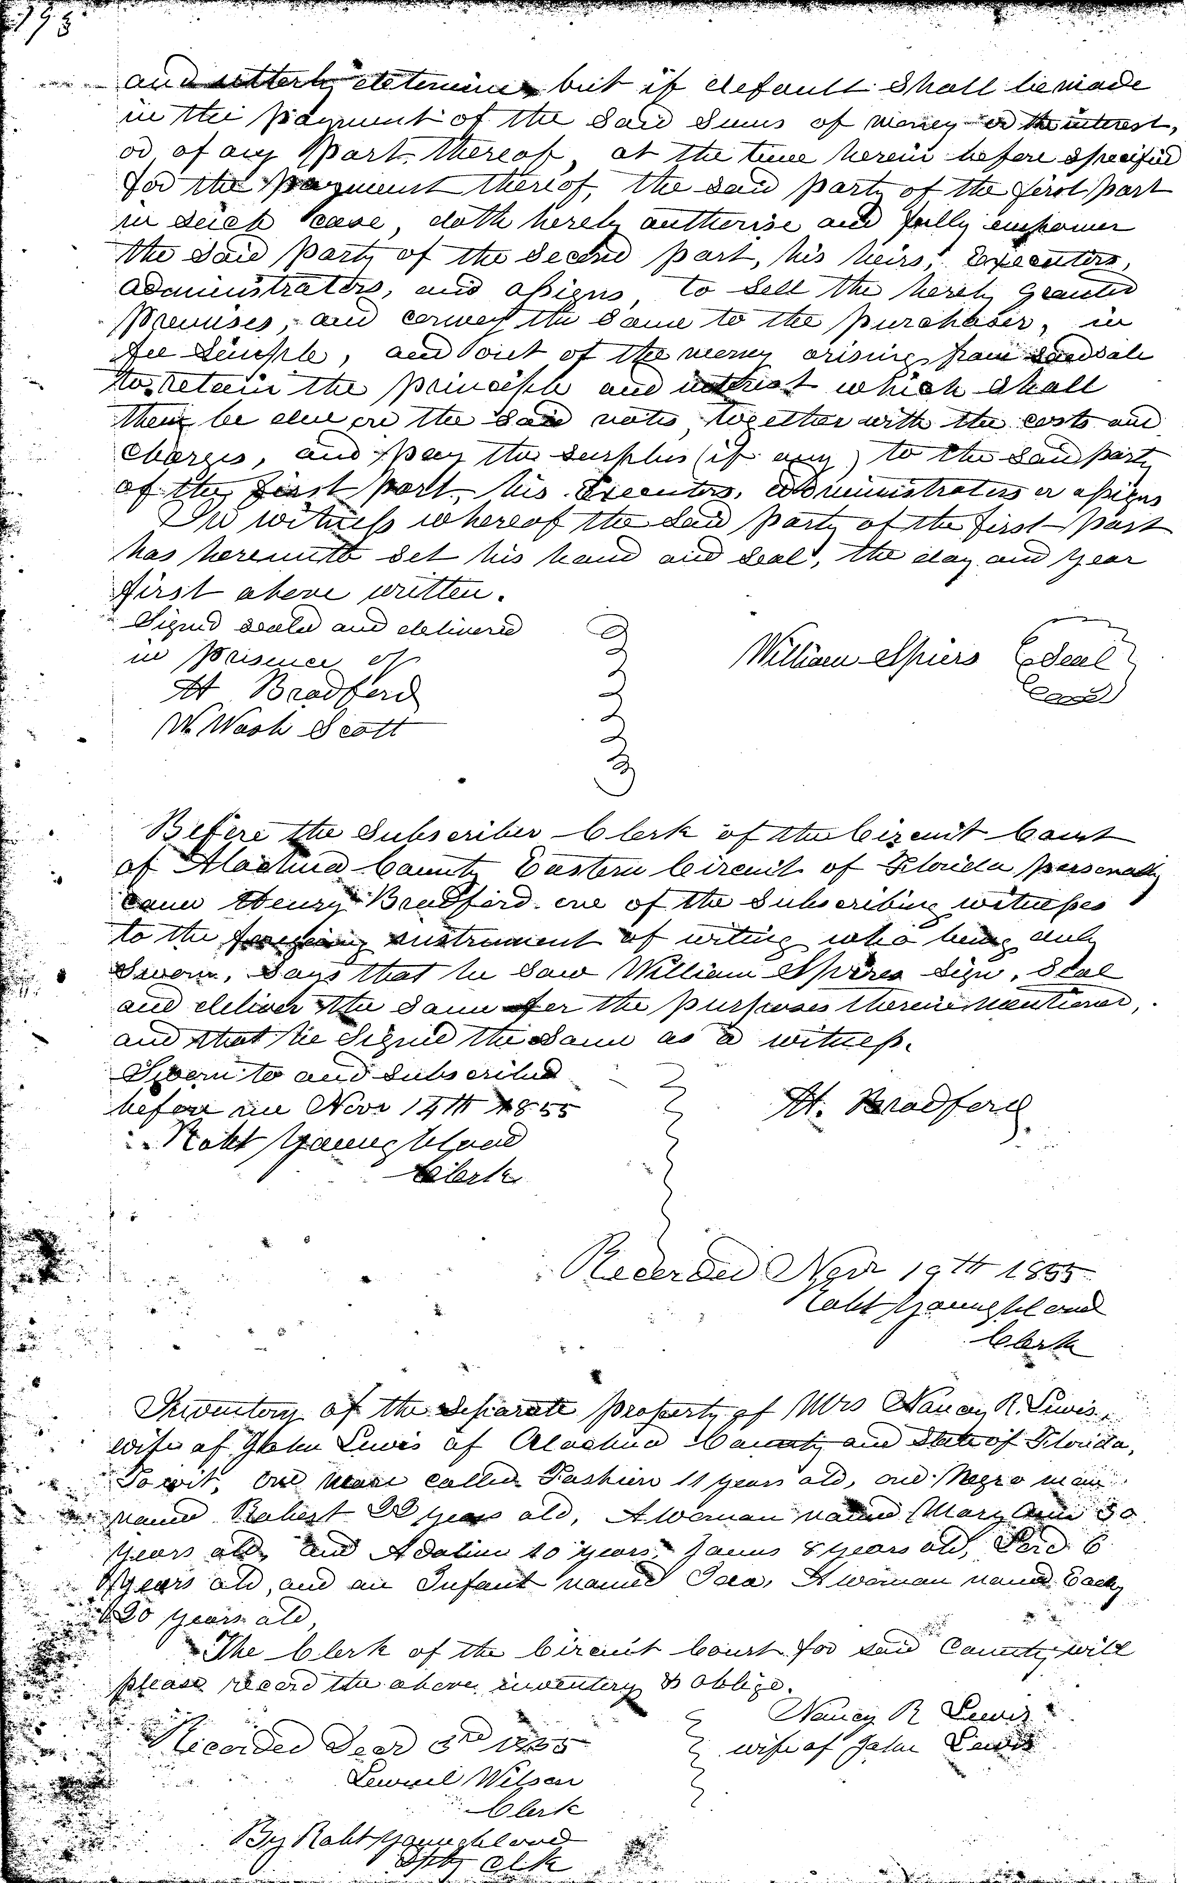 193
and utterly determine, but if default shall be made
in the payment of the said sums of money or the interest,
or of any part thereof, at the time herein before specified
for the payment thereof, the said party of the first part
in such case, doth hereby authorise and fully empower
the said party of the second part, his heirs, Executors,
administrators, and assigns, to sell the hereby granted
premises, and convey the same to the purchaser, in
fee simple, and out of the money arising from said sale
to retain the principle and interest which shall
then be due on the said notes, together with the costs and
charges, and pay the surplus (if any) to the said party
of the first part, his Executors, administrators or assigns
In witness whereof the said party of the first part
has hereunto set his hand and seal, the day and year
first above written.
Signed sealed and delivered
in presence of
H Bradford
W. Wash Scott
William Spiers Seal
Before the Subscriber Clerk of the Circuit Court
of Alachua County Eastern Circuit of Florida personally
came Henry Bradford one of the Subscribing witnesses
to the foregoing instrument of writing who being duly
Sworn, Says that he saw William Spires sign, Seal
and deliver the same for the purposes therein mentioned,
and that he signed the same as a witness.
Sworn to and subscribed
before me Novr 14th 1855
Robt Youngblood
Clerk
H. Bradford
Recorded Novr 19th 1855
Robt Youngblood
Clerk
Inventory of the separate property of Mrs Nancy R. Lewis,
wife of John Lewis of Alachua County and State of Florida,
To wit, one mare called Fashion 11 years old, one Negro man
named Robert 22 years old, A woman named Mary Ann 30
years old, and Adaline 10 years, James 8 years old, 6
years old, and an Infant named A woman named
20 years old,
The Clerk of the Circuit Court for said County will
please record the above inventory & oblige.
Nancy R Lewis
wife of John Lewis
Recorded Decr 3rd 1855
Lemuel Wilson
Clerk
By Robt Youngblood
Dpty Clk